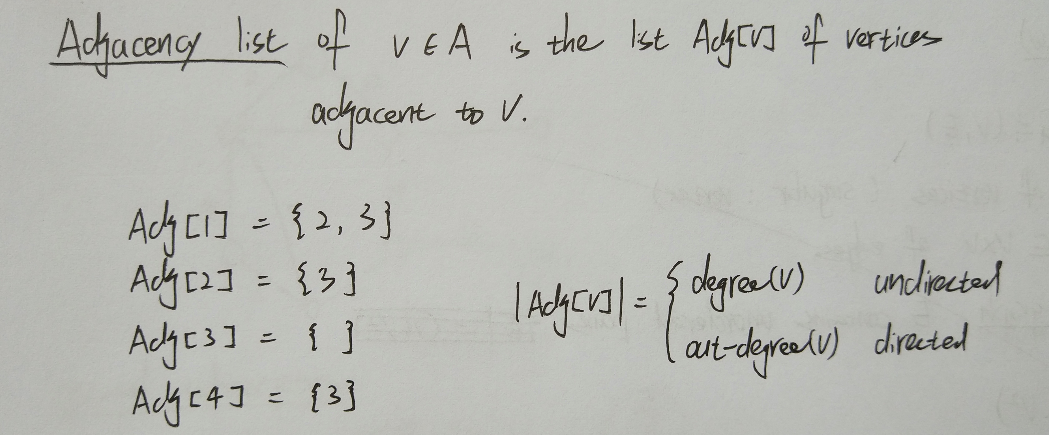 Adjacency list of v ∈ A is the list Adj[v] of vertices
adjacent to v.
Adj[1] = {2, 3}
Adj[2] = {3}
Adj[3] = { }
Adj[4] = {3}
|Adj[v]| = { degree(v) undirected
out-degree(v) directed